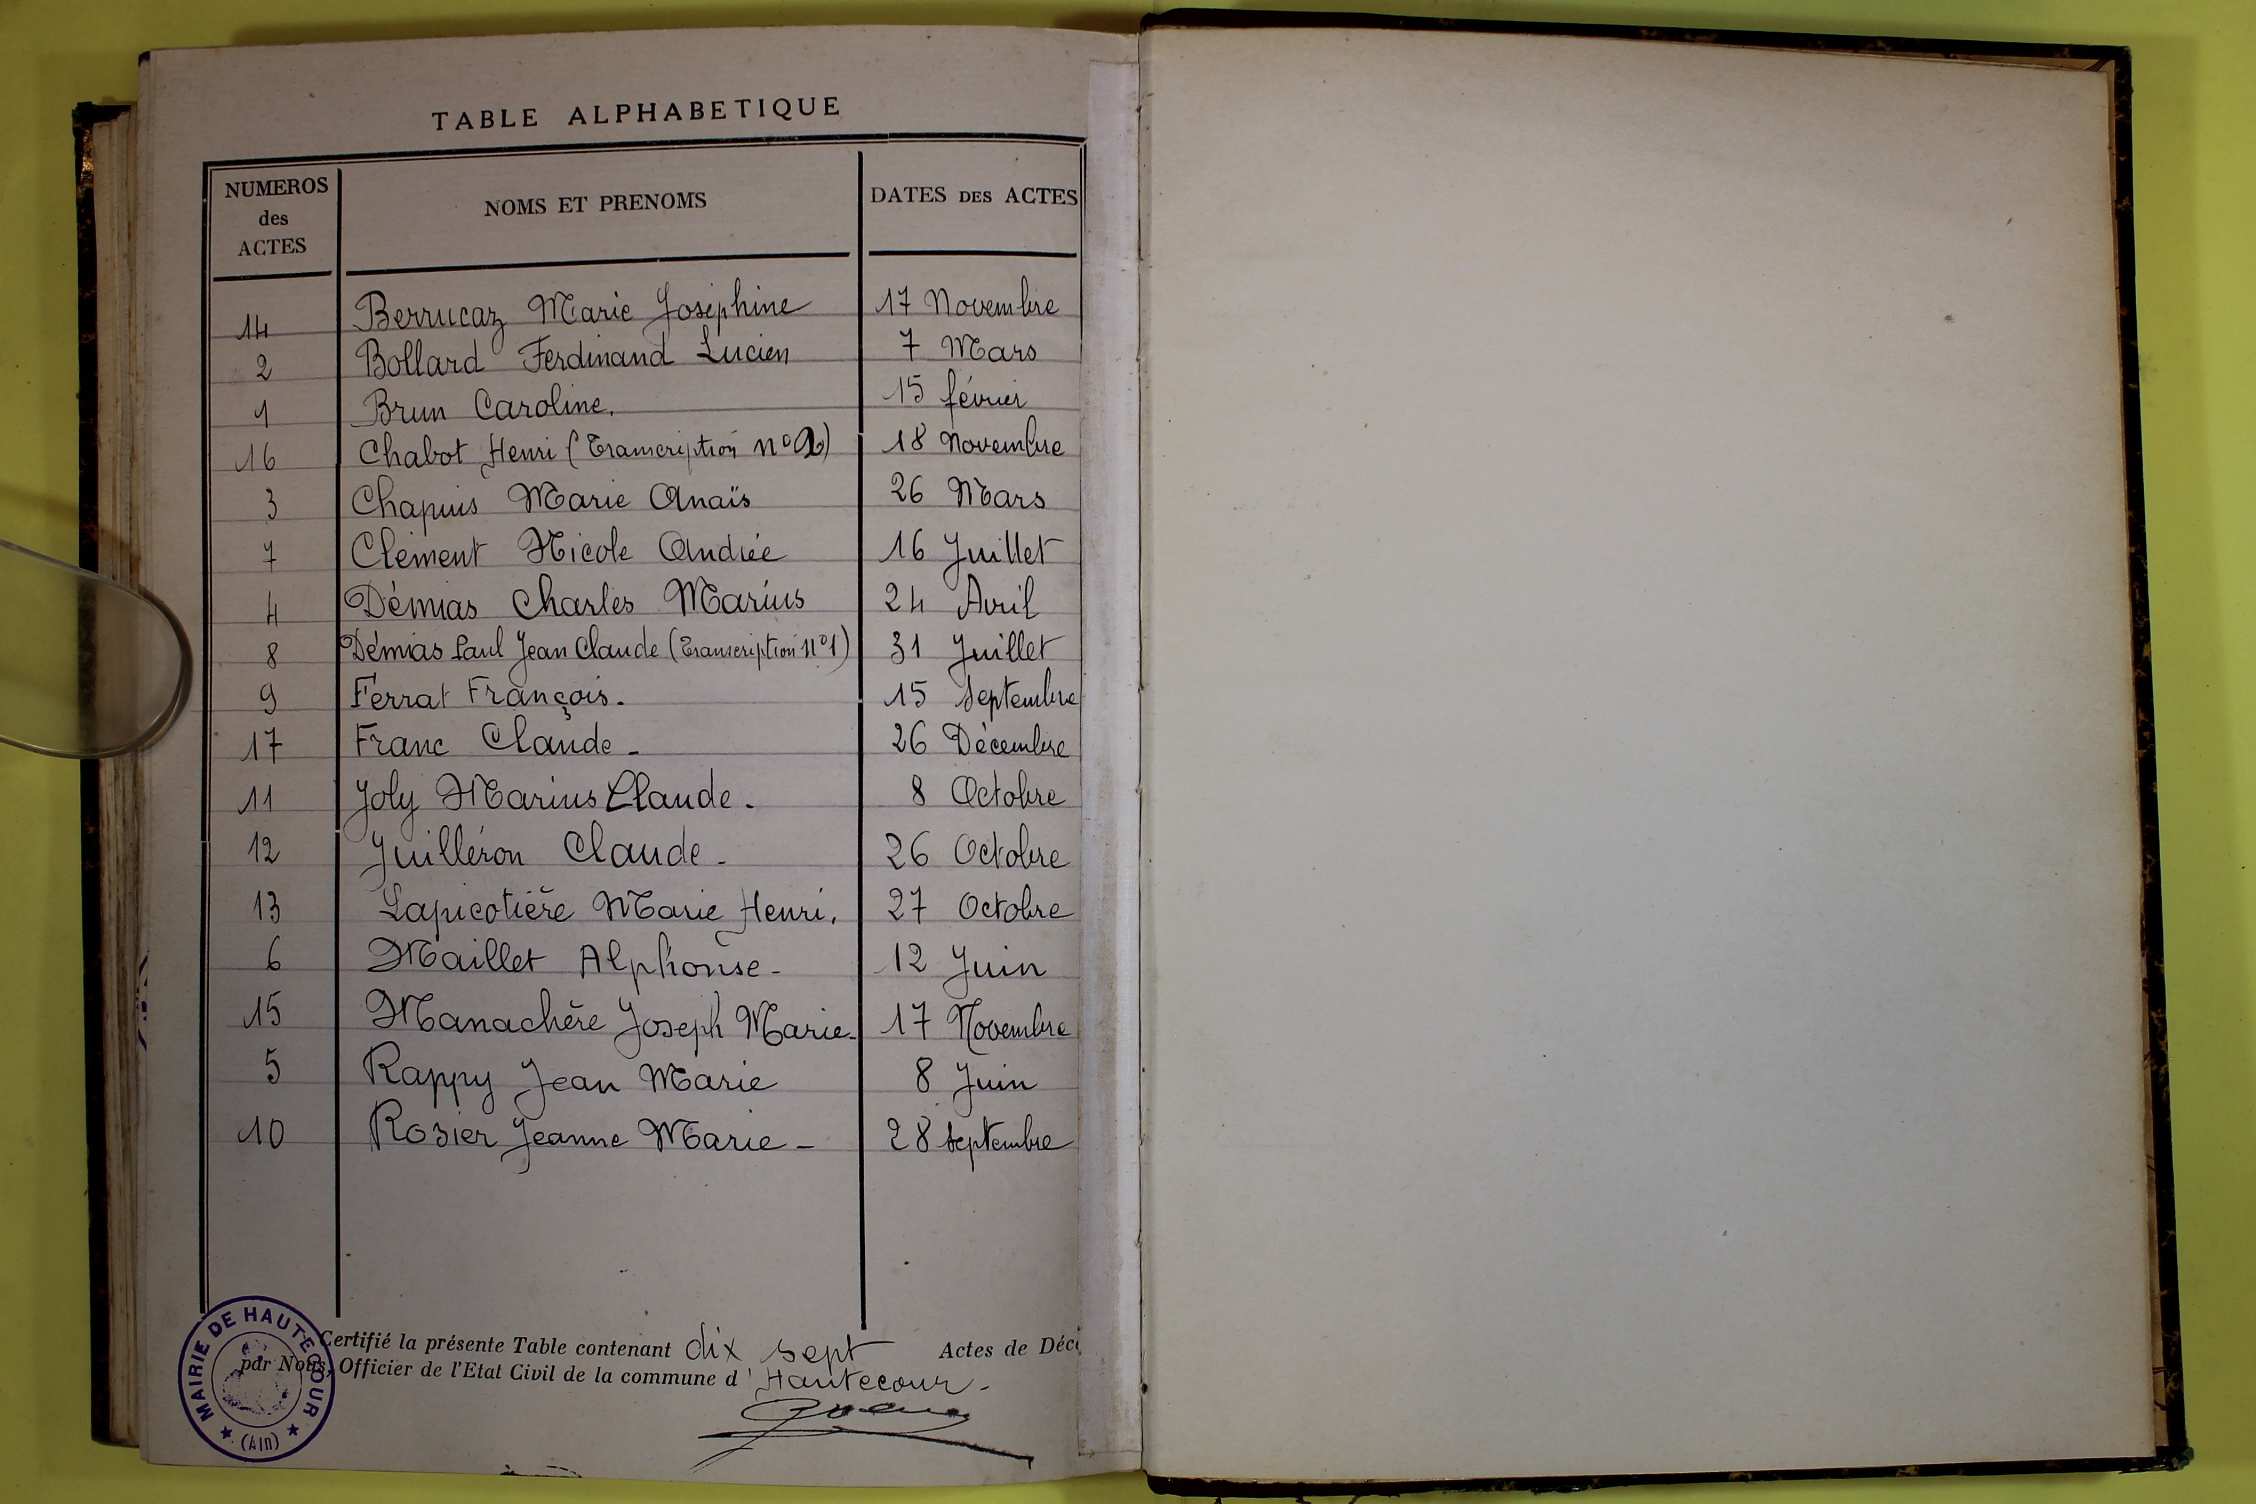 TABLE ALPHABETIQUE
NUMEROS des ACTES NOMS ET PRENOMS DATES DES ACTES
14 Berrucaz Marie Joséphine 17 Novembre
2 Bollard Ferdinand Lucien 7 Mars
1 Brun Caroline. 15 février
16 Chabot Henri (Transcription n° 2) 18 Novembre
3 Chapuis Marie Anaïs 26 Mars
7 Clément Nicole Andrée 16 Juillet
4 Démias Charles Marius 24 Avril
8 Démias Paul Jean Claude (Transcription N°1) 31 Juillet
9 Ferrat François. 15 Septembre
17 Franc Claude - 26 Décembre
11 Joly Marius Claude. 8 Octobre
12 Juilléron Claude - 26 Octobre
13 Lapicotière Marie Henri. 27 Octobre
6 Maillet Alphonse - 12 Juin
15 Manachère Joseph Marie - 17 Novembre
5 Rappy Jean Marie 8 Juin
10 Rozier Jeanne Marie - 28 septembre
Certifié la présente Table contenant dix sept Actes de Déc
par Nous, Officier de l'Etat Civil de la commune d'Hautecour -
MAIRIE DE HAUTECOUR
(Ain)